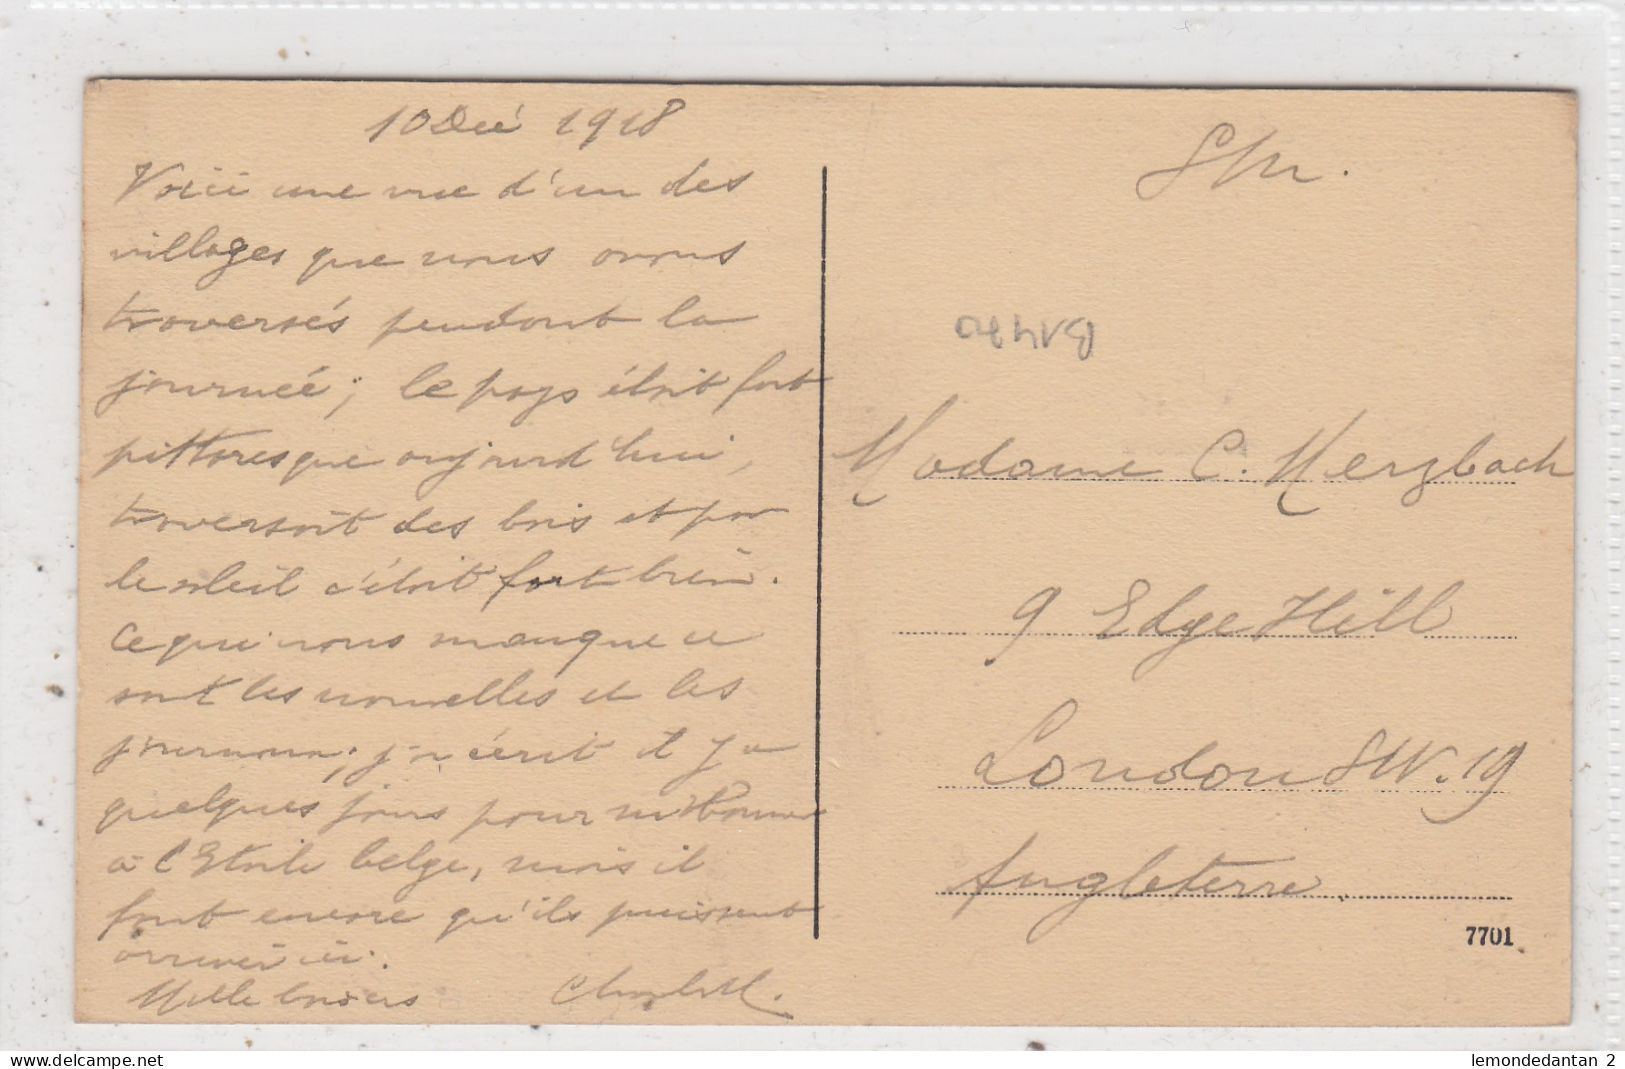 10 Dec 1918
Voici une vue d'un des
villages que nous avons
traversés pendant la
journée; le pays était fort
pittoresque aujourd'hui,
traversait des bois et par
le soleil c'était fort bien.
Ce qui nous manque ce
sont les nouvelles et les
journaux; j'ai écrit il y a
quelques jours pour m'abonner
à l'Etoile belge, mais il
faut encore qu'ils puissent
arriver ici.
Mille baisers
S.M.
Madame C. Merzbach
9 Edge Hill
London SW. 19
Angleterre
7701
lemondedantan 2
www.delcampe.net